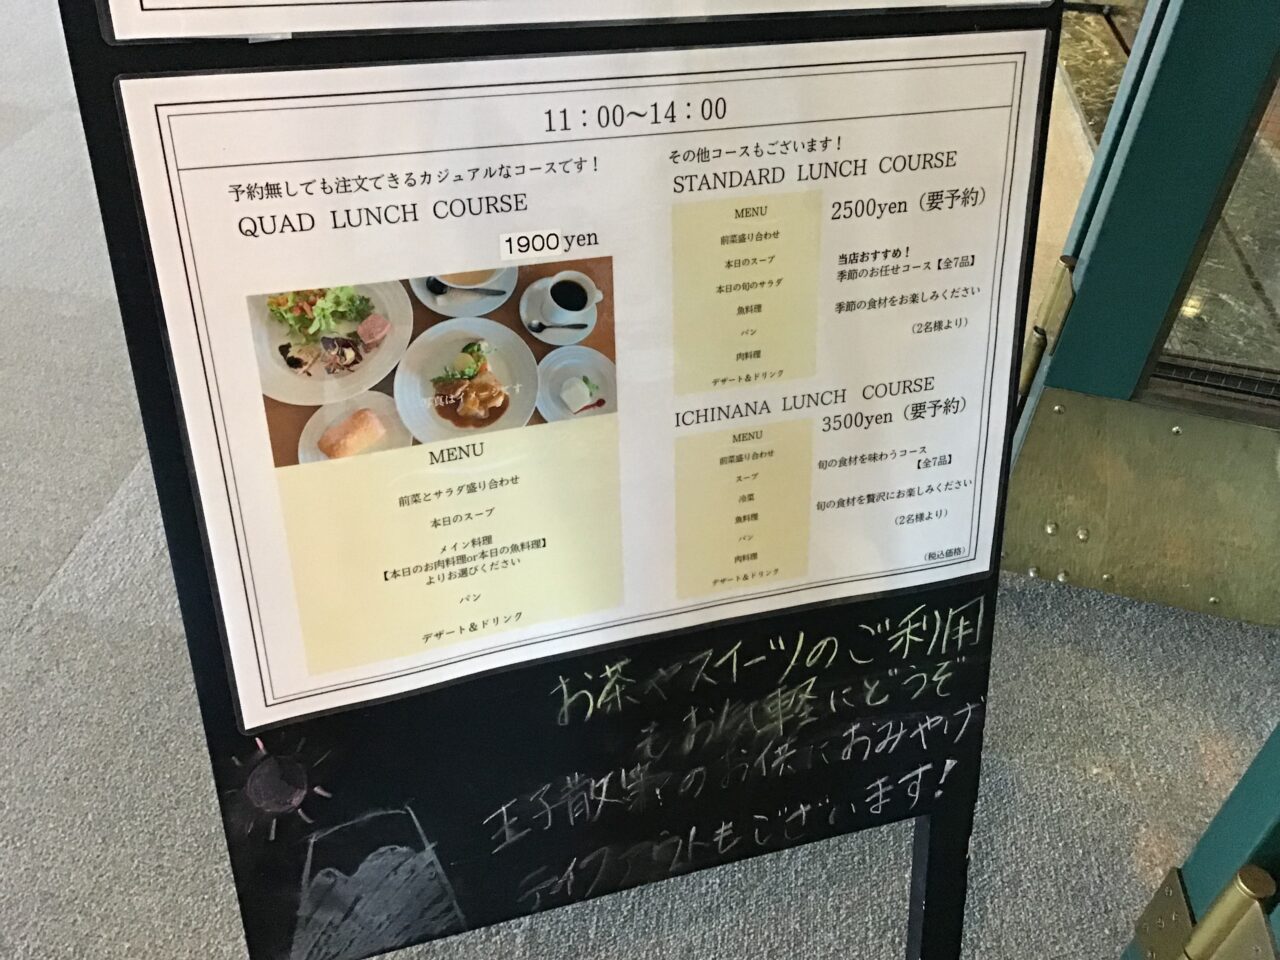 11：00～14：00
予約無しても注文できるカジュアルなコースです！
QUAD LUNCH COURSE
1900yen
写真はイメージです
MENU
前菜とサラダ盛り合わせ
本日のスープ
メイン料理
【本日のお肉料理or本日の魚料理】
よりお選びください
パン
デザート＆ドリンク
その他コースもございます！
STANDARD LUNCH COURSE
2500yen（要予約）
MENU
前菜盛り合わせ
本日のスープ
本日の旬のサラダ
魚料理
パン
肉料理
デザート＆ドリンク
当店おすすめ！
季節のお任せコース【全7品】
季節の食材をお楽しみください
（2名様より）
ICHINANA LUNCH COURSE
3500yen（要予約）
MENU
前菜盛り合わせ
スープ
冷菜
魚料理
パン
肉料理
デザート＆ドリンク
旬の食材を味わうコース
【全7品】
旬の食材を贅沢にお楽しみください
（2名様より）
（税込価格）
お茶やスイーツのご利用
もお気軽にどうぞ
王子散策のお供におみやげ
テイクアウトもございます！